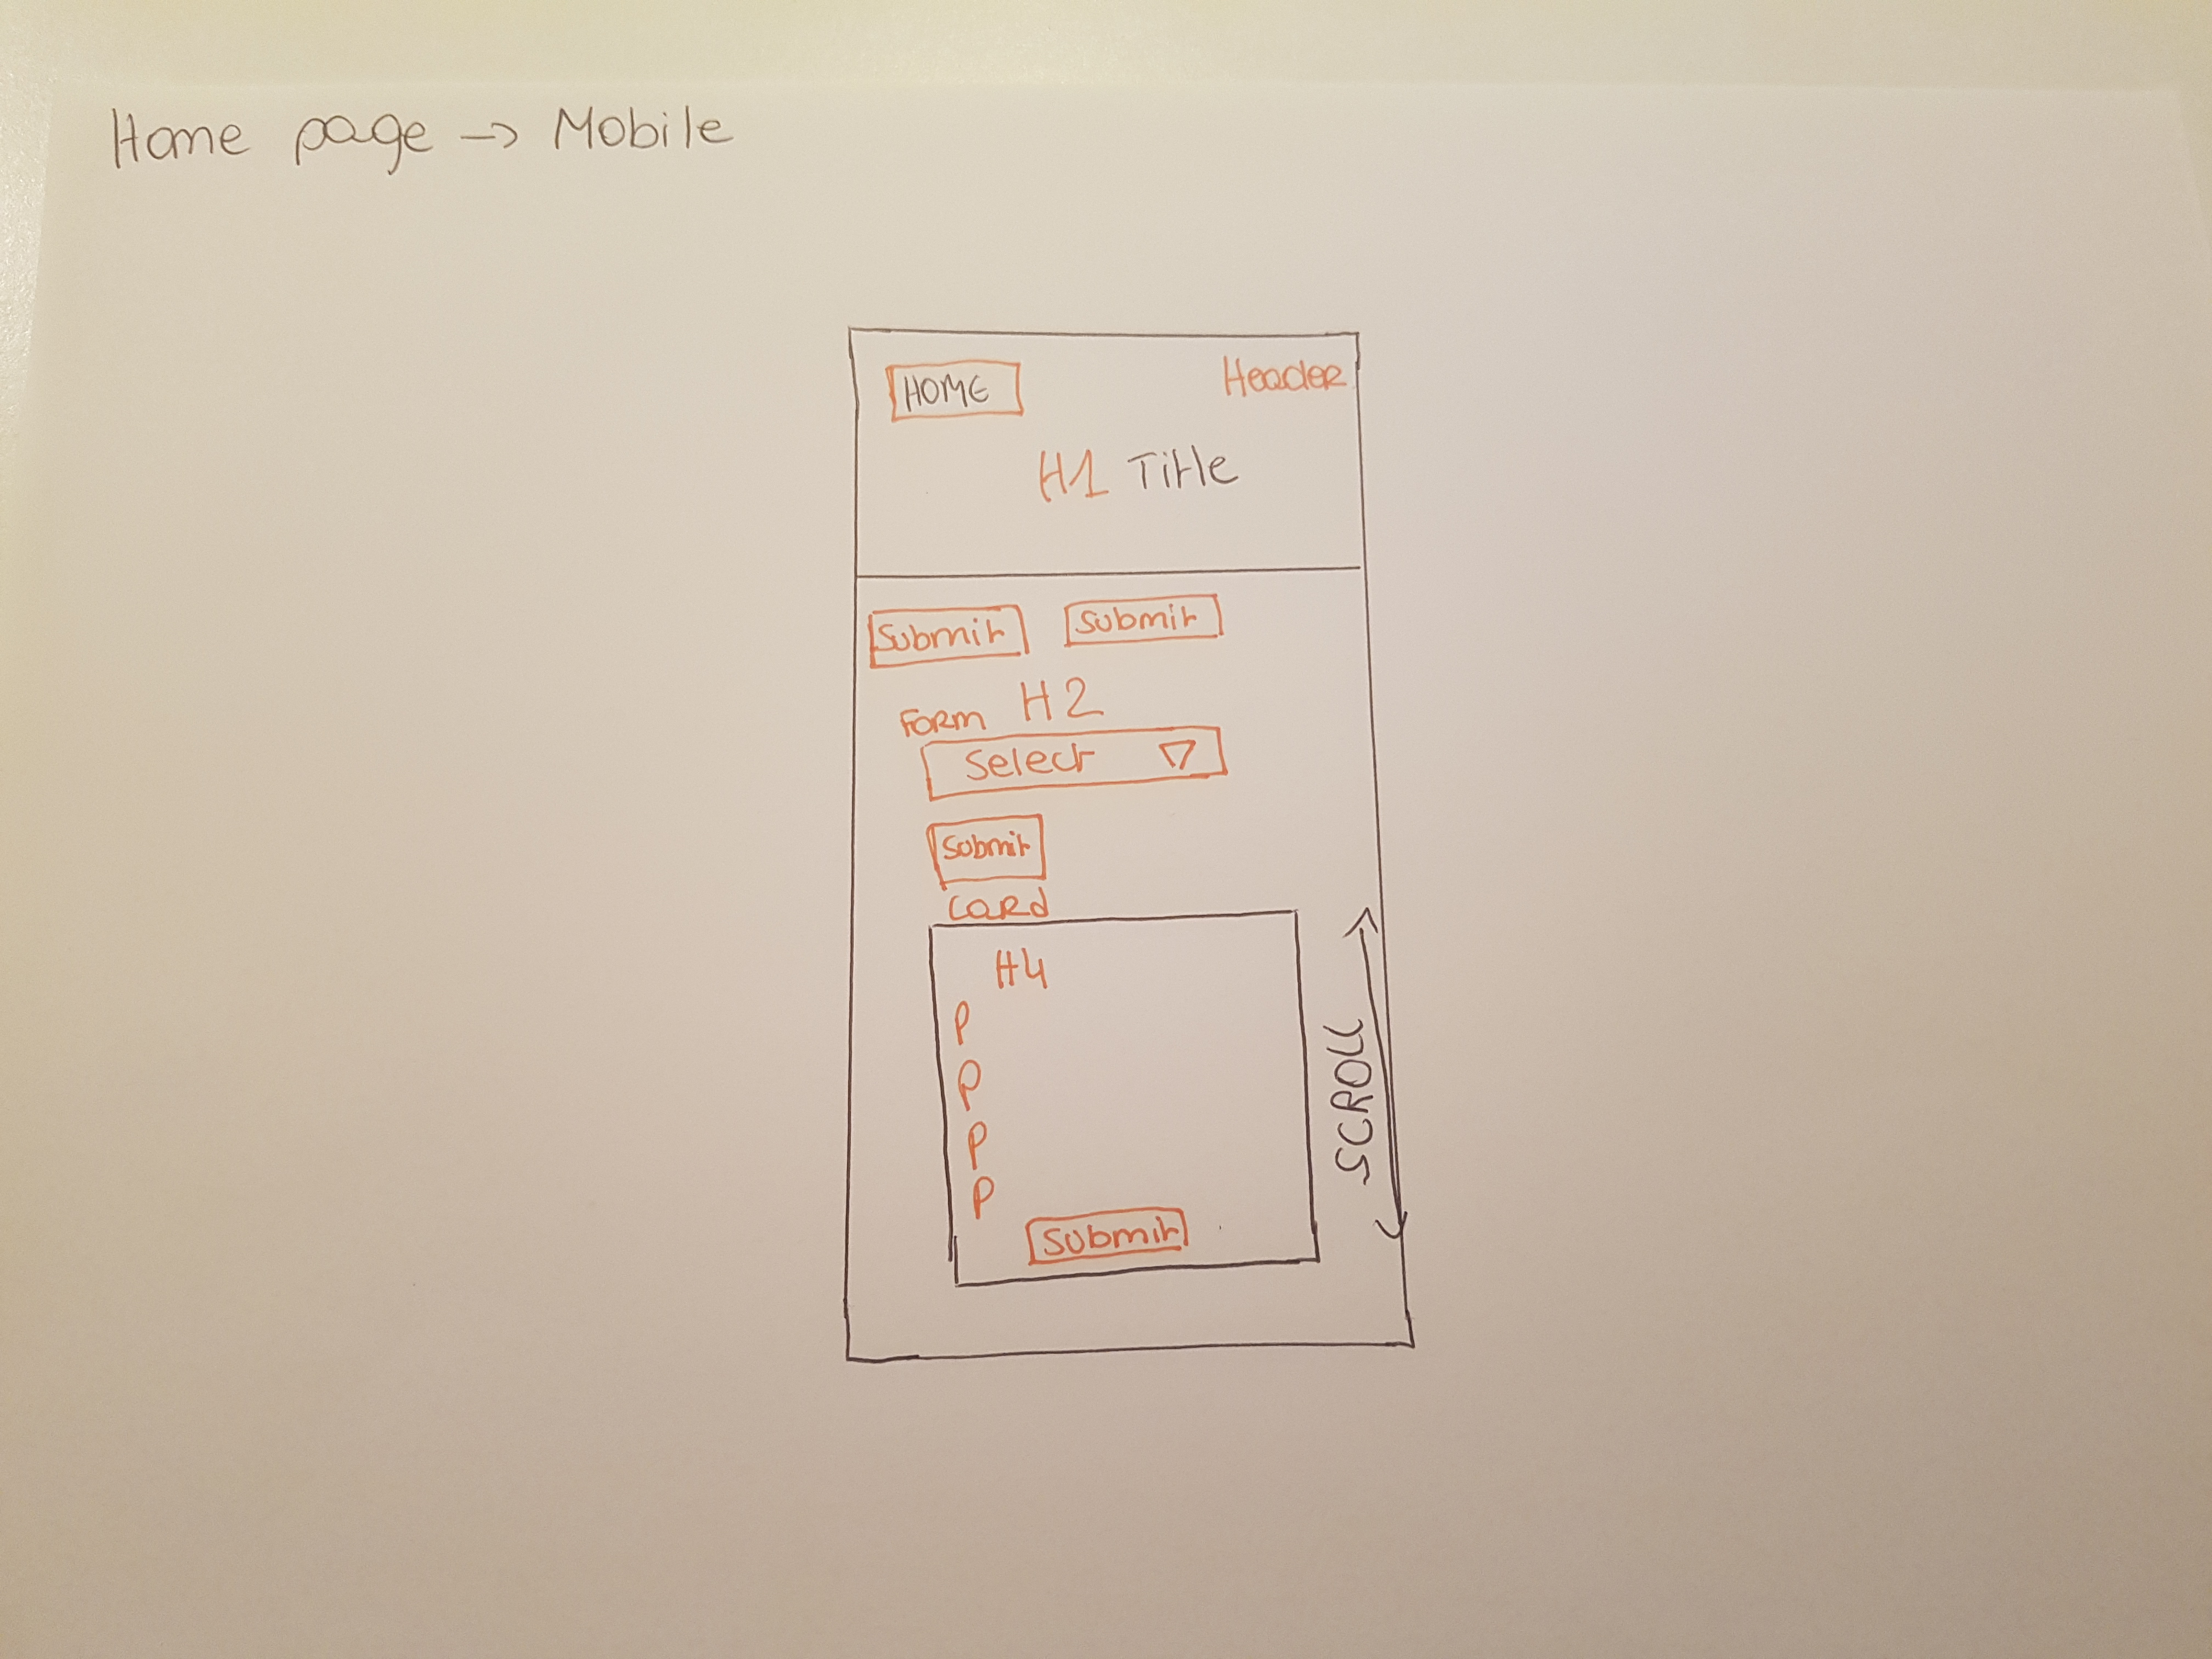 Home page -> Mobile
HOME
Header
H1 Title
Submit
Submit
H2
Form
Select
Submit
Card
H4
P
P
P
P
Submit
SCROLL